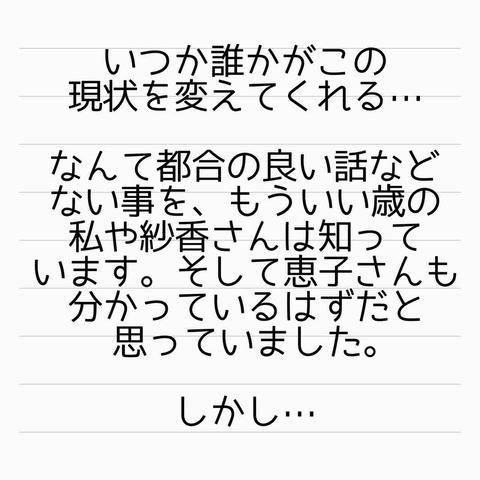 いつか誰かがこの
現状を変えてくれる…
なんて都合の良い話など
ない事を、もういい歳の
私や紗香さんは知って
います。そして恵子さんも
分かっているはずだと
思っていました。
しかし…